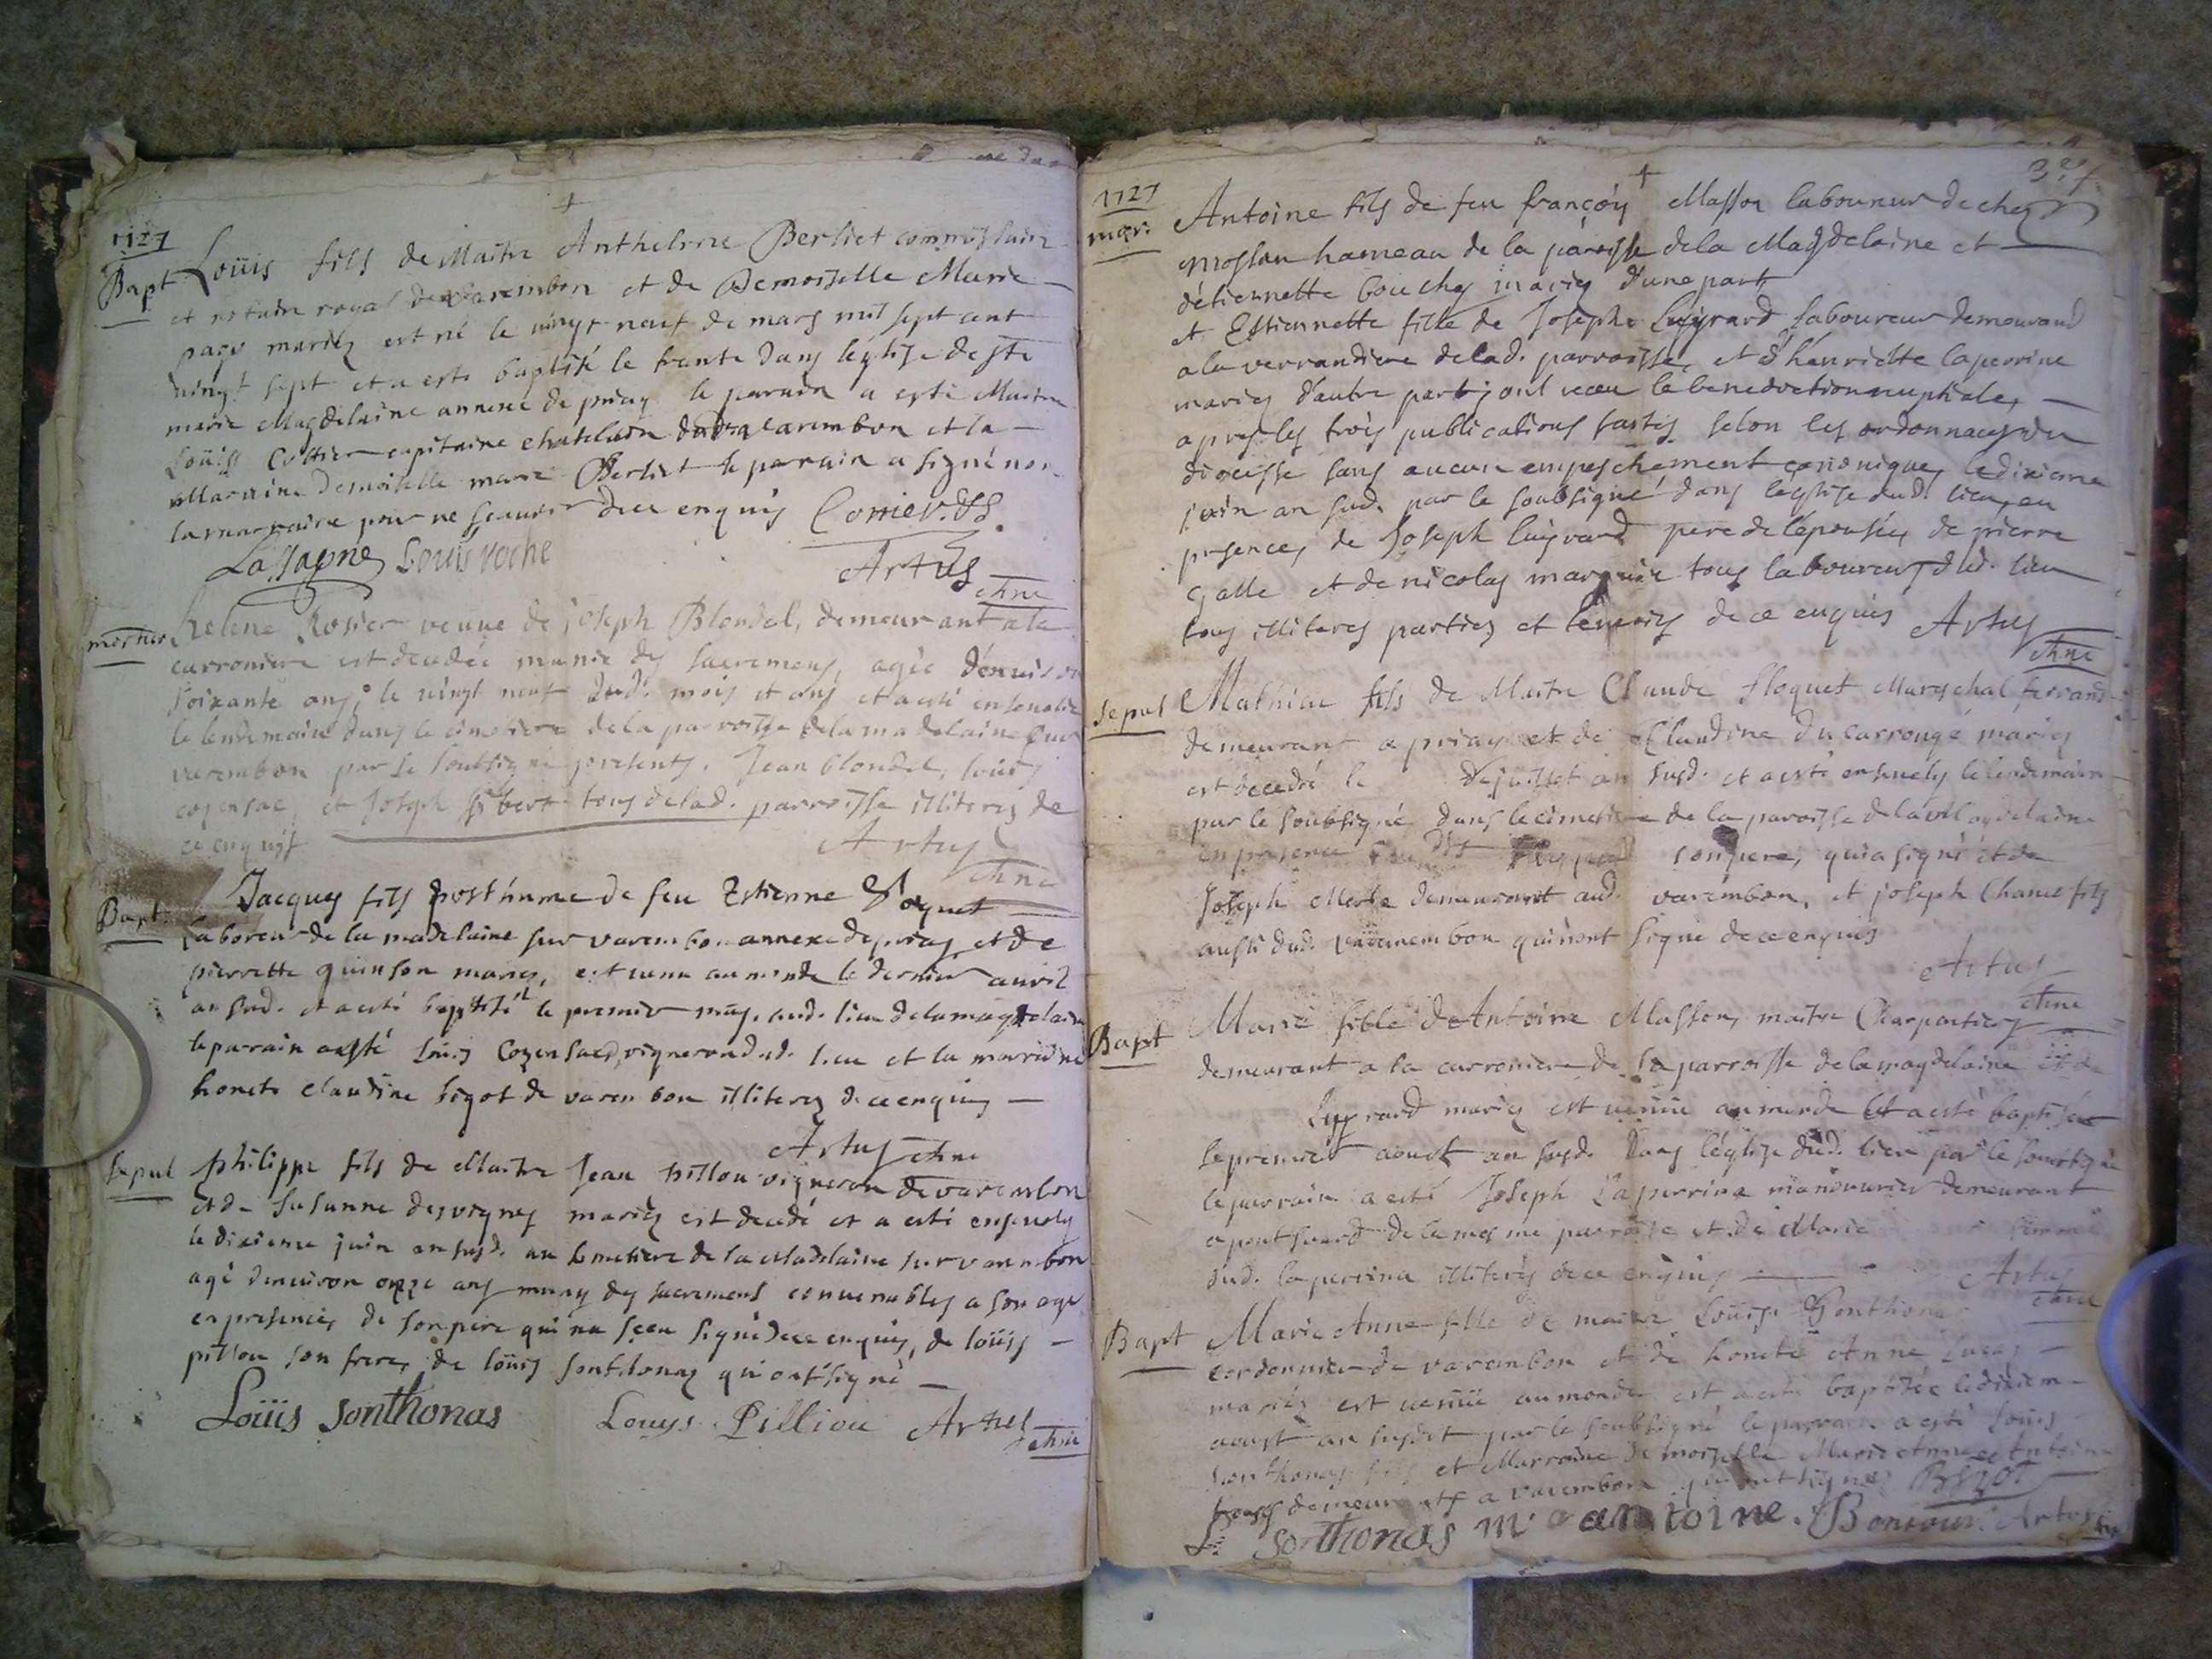 1727
Bapt
Loüis fils de Maitre Anthelme Berliet commissaire
et notaire royal de varembon et de Demoiselle Marie
page mariez est né le vingt neuf de mars mil sept cent
vingt sept et a esté baptisé le trente dans léglise de ste
marie Magdelaine annexe de priay le parain a esté Maitre
Loüis Cottier capitaine chatelain varembon et la
Marraine Demoiselle marie Berliet le parain a signé non
la marraine pour ne scavoir de ce enquis
Lassagne Louis roche
Artus
mortuo
helene Rosier veuve de joseph Blondel, demeurant a la
carroniere est decedée munie des sacremens, agée
soixante ans, le vingt neuf dud. mois et ans et a esté ensevelie
le lendemain dans le cimetiere de la parroisse de la madelaine sur
varembon par le soubsigné presents, Jean blondel, loüis
et Joseph tous de lad. parroisse illiterez de
ce enquis
Artus
Bapt
Jacques fils posthume de feu Estienne floquet
laboreur de la madelaine sur varembon annexe de priay et de
pierrette quinson mariez, est venu au monde le dernier avril
an sud. et a esté baptisé le premier may, aud. lieu de la magdelaine
le parain a esté loüis vigneron dud. lieu et la marraine
honete claudine bigot de varembon illiterez de ce enquis
Artus
sepul
philippe fils de Maitre Jean pillou vigneron de varembon
et de susanne desvignes mariez est decedé et a esté ensevely
le dixieme juin an susd. au cimetiere de la Madelaine sur varembon
agé denviron onze ans muny des sacremens convenables a son age
en presence, de son pere qui na sceu signé de ce enquis, de loüis
pillou son frere, de loüis sonthonas qui ont signé
Loüis sonthonas Louys Pilliou Artus
1727
mar.
Antoine fils de feu françois Masson laboureur de chez
hameau de la paroisse de la Magdelaine et
détiennette bouchez mariez dune part
et Estiennette fille de Joseph Luyrard laboureur demeurand
a la verrandiere de lad. parroisse, et d'henriette laperrine
mariez d'autre part, ont receu la benediction nuptiale,
apres les trois publications faites selon les ordonnances du
diocesse sans aucun empeschement canonique, le dixieme
juin an sud. par le soubsigné dans léglise dud. lieu, en
presence, de Joseph luyrard pere de lépousée, de pierre
galle et de nicolas tous laboureurs dud. lieu
tous illiterez parties et temoins de ce enquis Artus
sepul
Mathieu fils de Maitre Claude floquet Mareschal ferrand
demeurant a priay et de Claudine du carrougé mariez
est decedé le de juillet an susd. et a esté ensevely le lendemain
par le soubsigné dans le cimetiere de la paroisse de la Magdelaine
en presence son pere, qui a signé et de
Joseph Merle demeurant aud. varembon, et joseph Chanel fils
aussi dud. varembon qui nont signé de ce enquis
Artus
Bapt
Marie fille de Antoine Masson, maitre Charpentier
demeurant a la carroniere de la parroisse de la magdelaine et de
Luyrard mariez est venüe au monde et a esté baptisée
le premier aoust an susd. dans léglise dud. lieu par le soubsigné
le parrain a esté Joseph Laperrine manouvrier demeurant
a pont de la mesme parroisse et de Marie femme
dud. laperrine illiterez de ce enquis
Artus
Bapt
Marie Anne fille de maitre Loüis Sonthonas
cordonnier de varembon et de honete Anne
mariez est venüe au monde et a esté baptisée le dixieme
aoust an susdit par le soubsigné le parrain a esté loüis
sonthonas fils et Marraine demoiselle Marie Anne Antoine
tous demeurants a varembon qui ont signez
L. sonthonas m. antoine. Artus